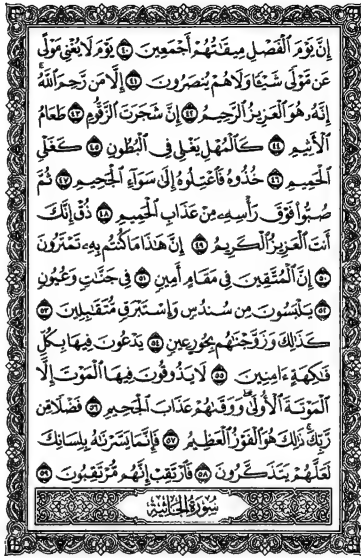 إِنَّ يَوْمَ الْفَصْلِ مِيقَاتُهُمْ أَجْمَعِينَ ٤٠ يَوْمَ لَا يُغْنِي مَوْلًى
عَن مَّوْلًى شَيْئًا وَلَا هُمْ يُنصَرُونَ ٤١ إِلَّا مَن رَّحِمَ اللَّهُ
إِنَّهُ هُوَ الْعَزِيزُ الرَّحِيمُ ٤٢ إِنَّ شَجَرَتَ الزَّقُّومِ ٤٣ طَعَامُ
الْأَثِيمِ ٤٤ كَالْمُهْلِ يَغْلِي فِي الْبُطُونِ ٤٥ كَغَلْيِ
الْحَمِيمِ ٤٦ خُذُوهُ فَاعْتِلُوهُ إِلَىٰ سَوَاءِ الْجَحِيمِ ٤٧ ثُمَّ
صُبُّوا فَوْقَ رَأْسِهِ مِنْ عَذَابِ الْحَمِيمِ ٤٨ ذُقْ إِنَّكَ
أَنتَ الْعَزِيزُ الْكَرِيمُ ٤٩ إِنَّ هَٰذَا مَا كُنتُم بِهِ تَمْتَرُونَ
٥٠ إِنَّ الْمُتَّقِينَ فِي مَقَامٍ أَمِينٍ ٥١ فِي جَنَّاتٍ وَعُيُونٍ
٥٢ يَلْبَسُونَ مِن سُندُسٍ وَإِسْتَبْرَقٍ مُّتَقَابِلِينَ ٥٣
كَذَٰلِكَ وَزَوَّجْنَاهُم بِحُورٍ عِينٍ ٥٤ يَدْعُونَ فِيهَا بِكُلِّ
فَاكِهَةٍ ءَامِنِينَ ٥٥ لَا يَذُوقُونَ فِيهَا الْمَوْتَ إِلَّا
الْمَوْتَةَ الْأُولَىٰ وَوَقَاهُمْ عَذَابَ الْجَحِيمِ ٥٦ فَضْلًا مِّن
رَّبِّكَ ذَٰلِكَ هُوَ الْفَوْزُ الْعَظِيمُ ٥٧ فَإِنَّمَا يَسَّرْنَاهُ بِلِسَانِكَ
لَعَلَّهُمْ يَتَذَكَّرُونَ ٥٨ فَارْتَقِبْ إِنَّهُم مُّرْتَقِبُونَ ٥٩
سُورَةُ الْجَاثِيَةِ